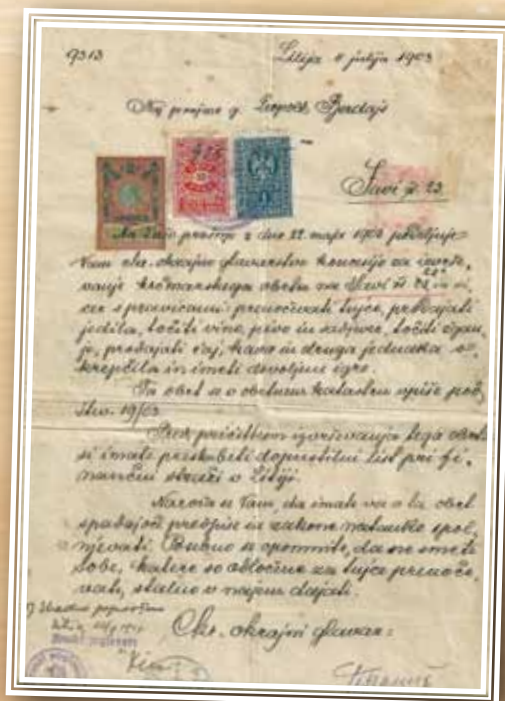 9313 Litija 8 julija 1903
g. Leopold Bordajs
Savi št 23
Na Vašo prošnjo z dne 22. maja 1903 podeljuje
Vam cks. okrajno glavarstvo koncesijo za izvrše,
vanje krčmarskega obrta na Savi št 23 in si,
cer s pravicami: prenočevati tujce, prodajati
jedila, točiti vino, pivo in sadjevec, točiti žganj,
je, prodajati čaj, kavo in druga jednaka o=
krepčila in imeti dovoljene igre.
Ta obrt se v obrtnem katastru vpiše pod
štev. 19/03
Pred pričetkom izvrševanja tega obrta
si imate priskrbeti dopustilni list pri fi,
nančni straži v Litiji.
Naroča se Vam, da imate vse v ta obrt
spadajoč predpise in zakone natanko spol,
njevati. se opomnite, da ne smete
sobe, katere so določene za tujce prenoče,
vati, stalno v najem dajati.
Cks. okrajni glavar: